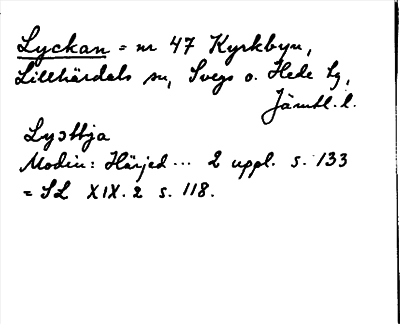 Lyckan = nr 47 Kyrkbyn,
Lillhärdals sn, Svegs o. Hede tg,
Jämtl. l.
Lystbja
Modin: Härjed... 2 uppl. s. 133
= SL XIX. 2 s. 118.